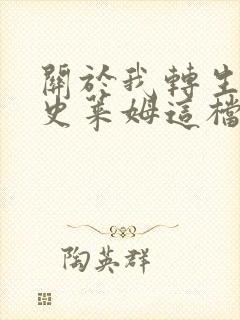 關於我轉生
史萊姆這檔
陶英群